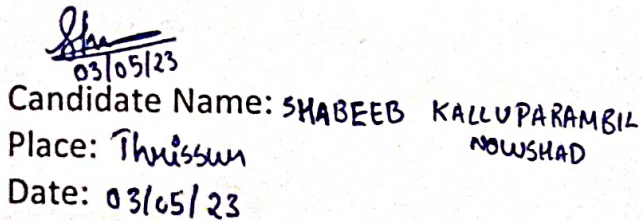 03/05/23
Candidate Name: SHABEEB KALLUPARAMBIL
NOWSHAD
Place: Thrissur
Date: 03/05/23